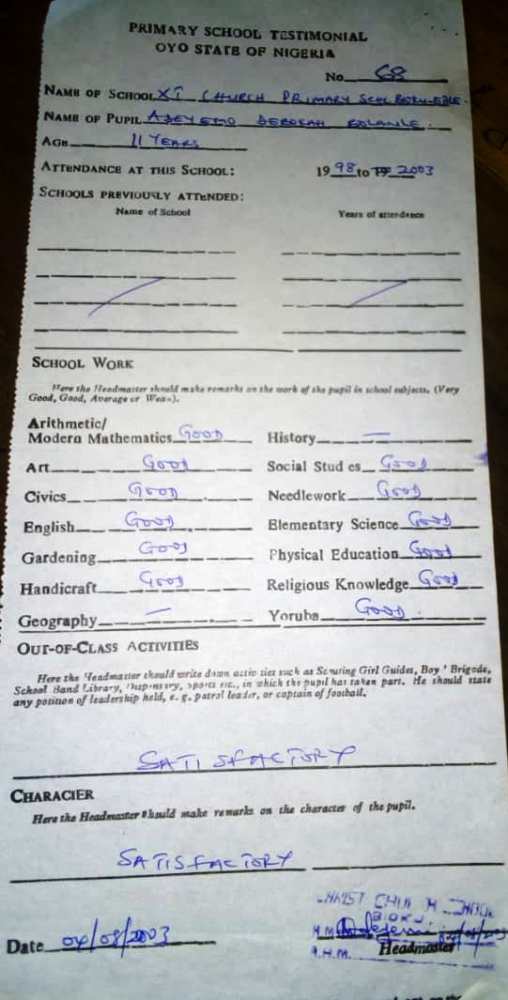 PRIMARY SCHOOL TESTIMONIAL
OYO STATE OF NIGERIA
No. 68
NAME OF SCHOOL XT CHURCH PRIMARY SCHL
NAME OF PUPIL ADEYEMO DEBORAH BOLANLE
AGE 11 YEARS
ATTENDANCE AT THIS SCHOOL: 1998 to 19 2003
SCHOOLS PREVIOUSLY ATTENDED:
Name of School Years of attendance
SCHOOL WORK
Here the Headmaster should make remarks on the work of the pupil in school subjects. (Very
Good, Good, Average or Weak).
Arithmetic/
Modern Mathematics GOOD History
Art Good Social Studies Good
Civics Good Needlework Good
English Good Elementary Science Good
Gardening Good Physical Education Good
Handicraft Good Religious Knowledge Good
Geography Yoruba Good
OUT-OF-CLASS ACTIVITIES
Here the Headmaster should write down activities such as Scouting Girl Guides, Boy' Brigade,
School Band Library, Dispensary, sports etc., in which the pupil has taken part. He should state
any position of leadership held, e. g. patrol leader, or captain of football.
SATISFACTORY
CHARACTER
Here the Headmaster should make remarks on the character of the pupil.
SATISFACTORY
CHRIST CHURCH
H.M.
Date 04/08/2003
A.H.M. Headmaster